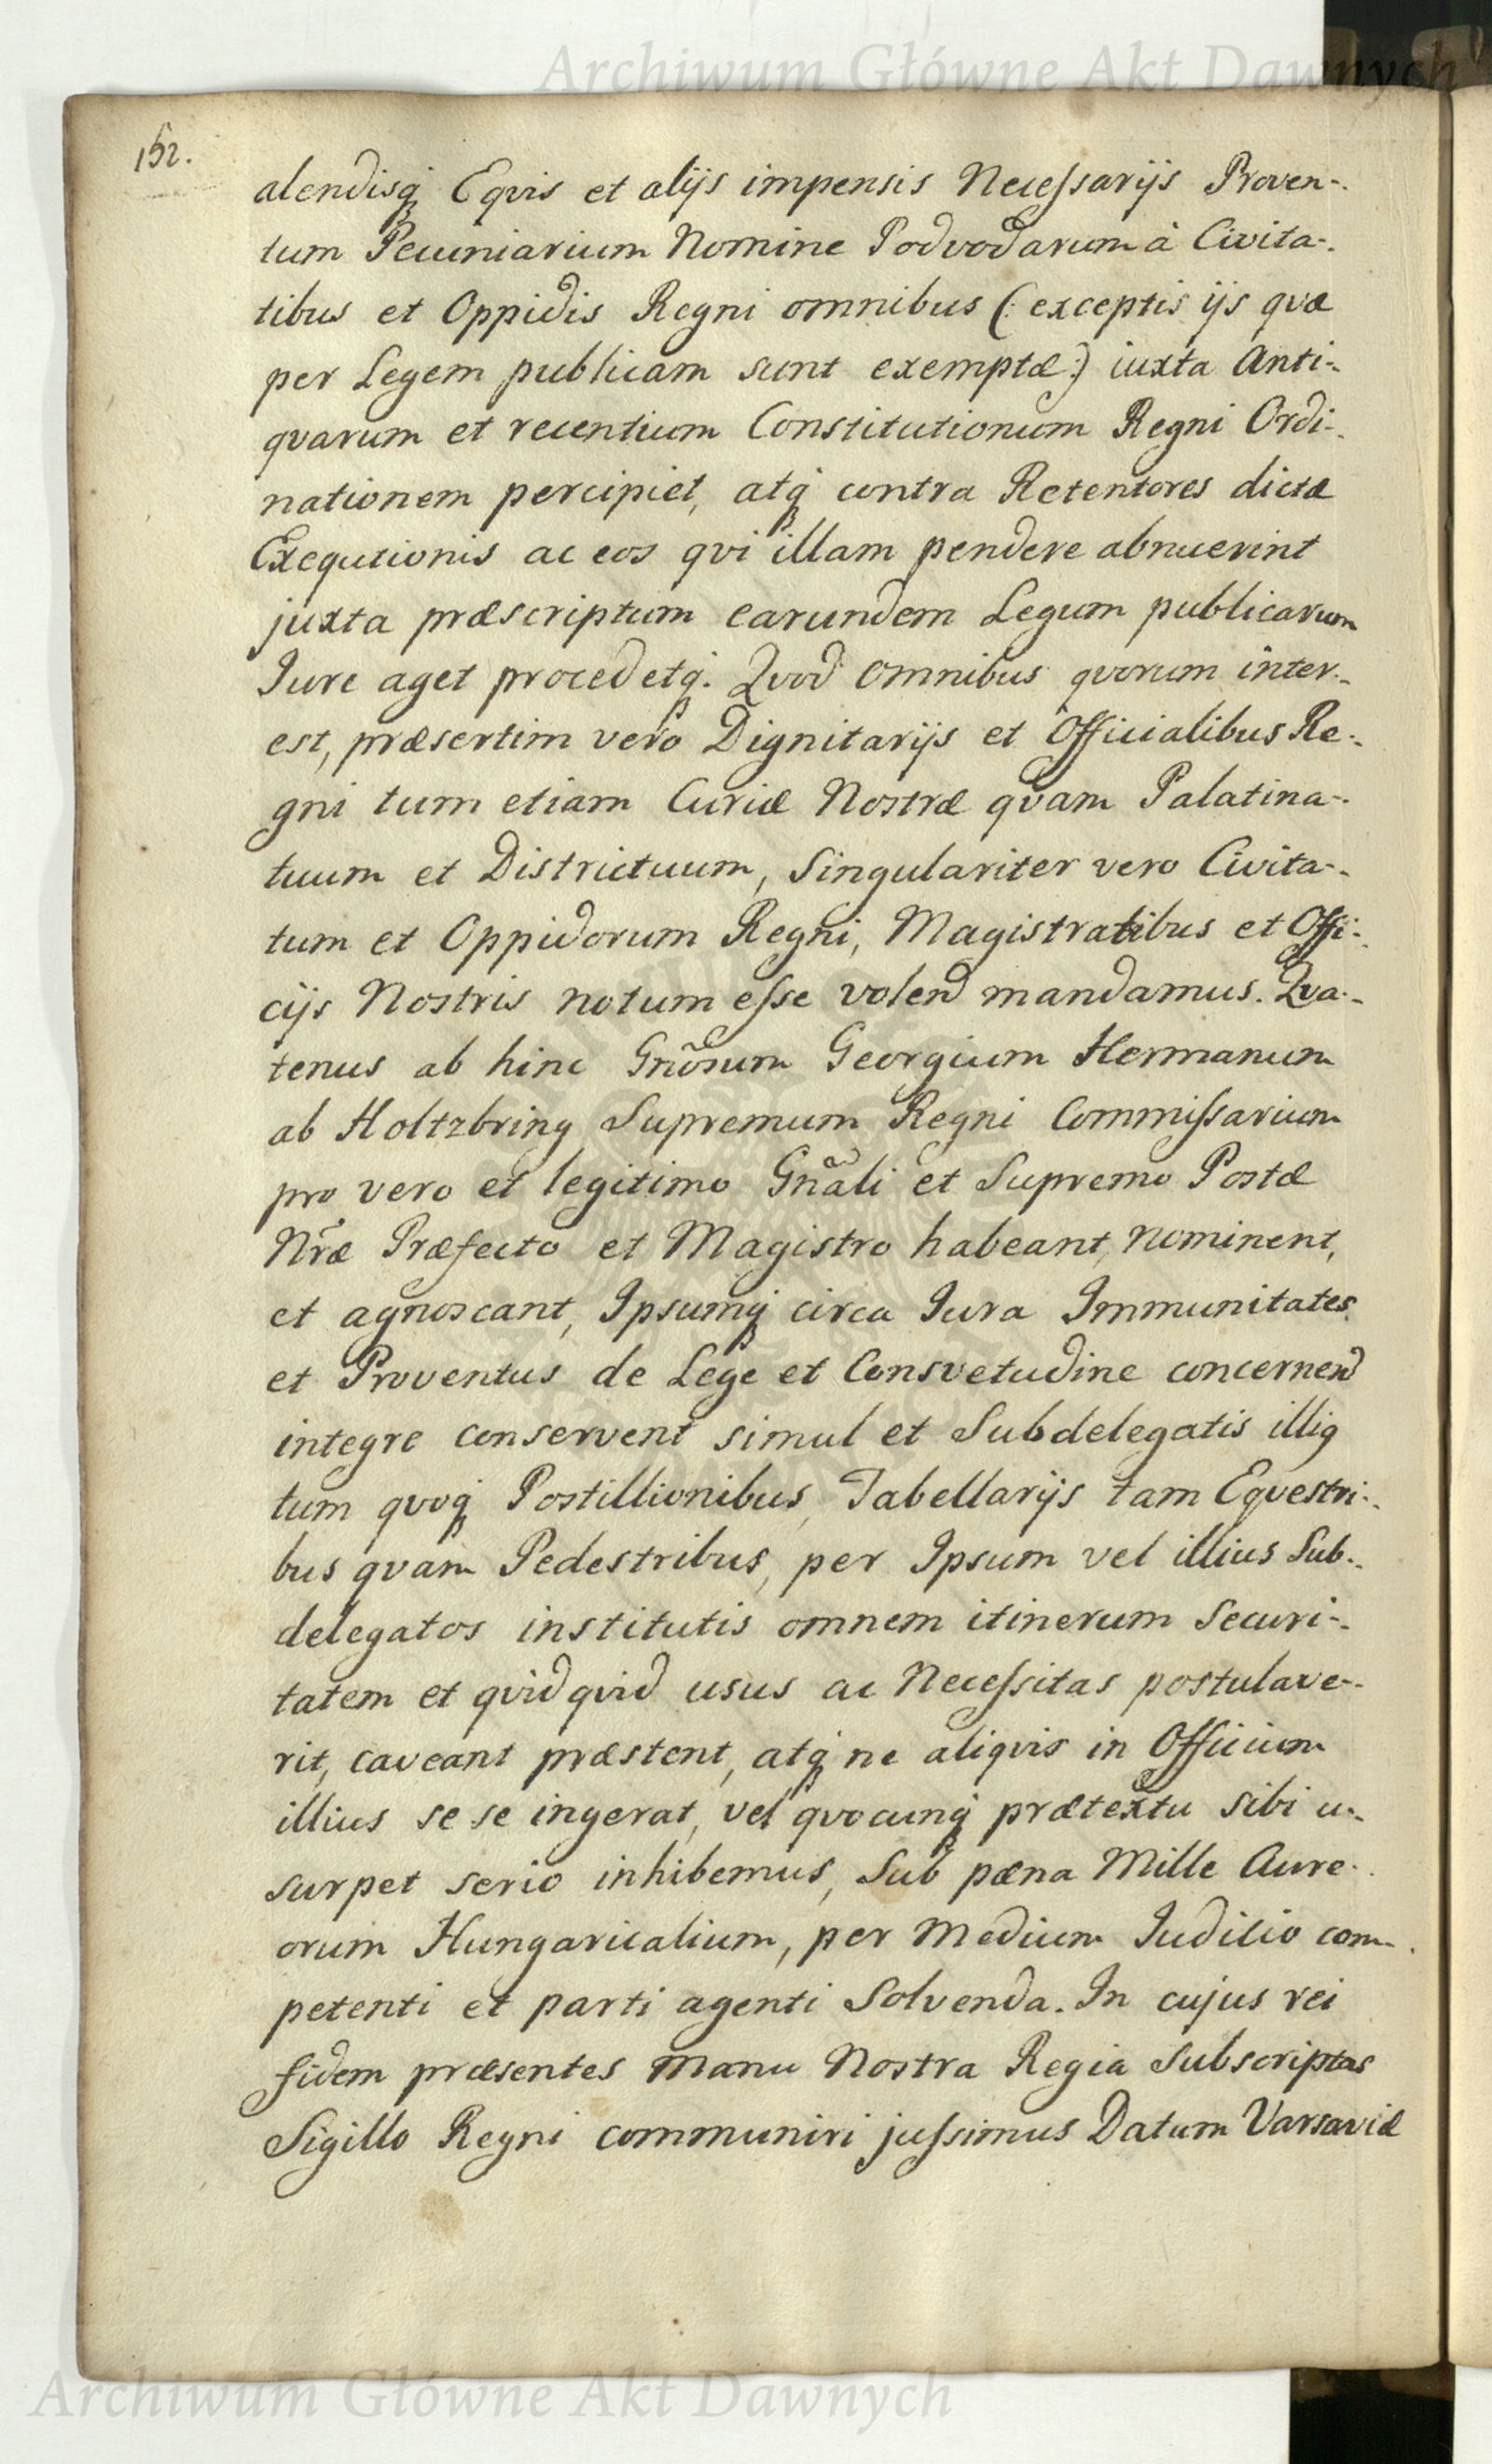 Archiwum Główne Akt Dawnych
152.
alendisq́ Eqvis et alijs impensis Neceſsarijs Proven-
tum Pecuniarium Nomine Podvodarum à Civita-
tibus et Oppidis Regni omnibus (: exceptis ijs qvæ
per Legem publicam sunt exemptæ:) iuxta Anti-
qvarum et recentium Constitutionum Regni Ordi-
nationem percipiet, atq́ contra Retentores dictæ
Exequtionis ac eos qvi illam pendere abnuerint
juxta præscriptum earundem Legum publicarum
Jure aget procedetq́. Qvod omnibus qvorum inter-
est, præsertim vero Dignitarijs et Officialibus Re-
gni tum etiam Curiæ Nostræ qvam Palatina-
tuum et Districtuum, Singulariter vero Civita-
tum et Oppidorum Regni, Magistratibus et Offi-
cijs Nostris notum eſse volend mandamus. Qva-
tenus ab hinc Gnõsum Georgium Hermanum
ab Holtzbring Supremum Regni Commiſsarium
pro vero et legitimo Gnãli et Supremo Postæ
Nr̃æ Præfecto et Magistro habeant, nominent,
et agnoscant, Ipsumq́ circa Jura Immunitates
et Proventus de Lege et Consvetudine concernend
integre conservent simul et Subdelegatis illiq
tum qvoq́ Postillionibus, Tabellarijs tam Eqvestri-
bus qvam Pedestribus, per Ipsum vel illius Sub-
delegatos institutis omnem itinerum Securi-
tatem et qvidqvid usus ac Neceſsitas postulave-
rit, caveant præstent, atq́ ne aliqvis in Officium
illius se se ingerat, vel qvocunq́ prætextu sibi u-
surpet serio inhibemus, Sub pæna Mille Aure-
orum Hungaricalium, per Medium Judicio com-
petenti et parti agenti Solvenda. In cujus rei
fidem præsentes Manu Nostra Regia Subscriptas
Sigillo Regni communiri juſsimus Datum Varsaviæ
Archiwum Główne Akt Dawnych